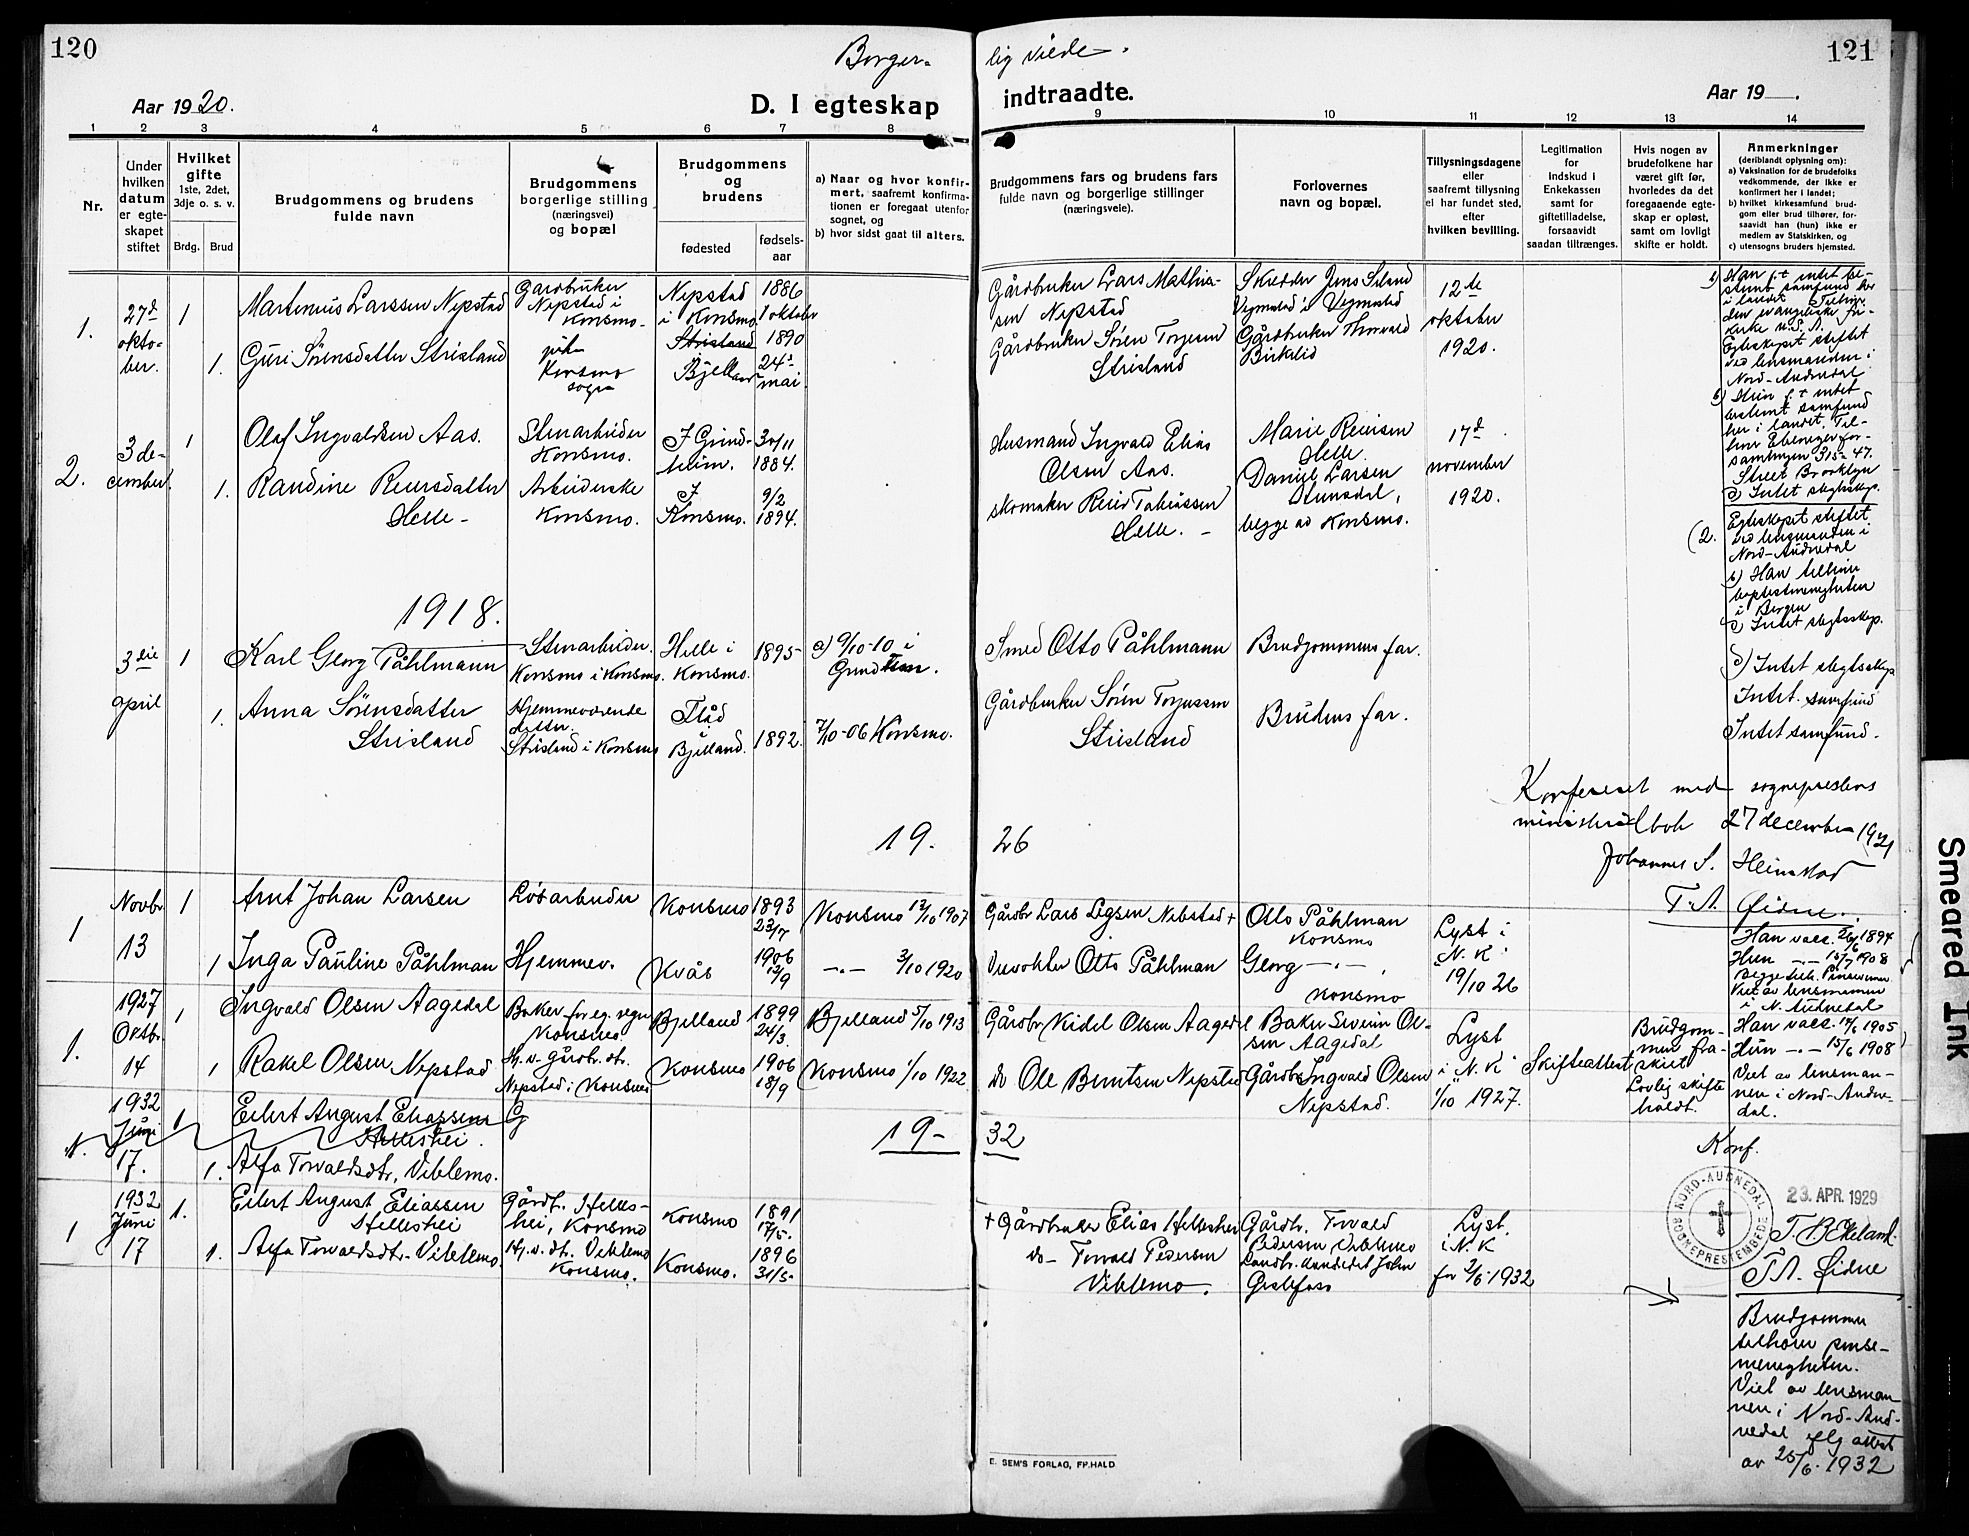 120
Borger-
Aar 1920.
D. I egteskap
1 2 3 4 5 6 7 8
Nr.
Under hvilken datum er egteskapet stiftet
Hvilket gifte
1ste, 2det, 3dje o. s. v.
Brdg. Brud
Brudgommens og brudens fulde navn
Brudgommens borgerlige stilling (næringsvei) og bopæl
Brudgommens og brudens
fødested
fødsels-aar
a) Naar og hvor konfir-
mert, saafremt konfirma-
tionen er foregaat utenfor
sognet, og
b) hvor sidst gaat til alters.
1.
27de
okto-
ber.
1
Martenius Larssen Nepstad
Gardbruker
Nepstad i
Konsmo.
Nepstad
i Konsmo.
1886
1 oktober
1.
Guri Sørensdatter Strisland
Konsmo
sogn
Strisland
Bjelland
1890
24de
mai
2.
3 de-
cember.
1
Olaf Ingvaldsen Aas.
Stenarbeider
Konsmo.
I Grind-
heim.
30/11
1884.
1.
Randine Reiersdatter
Helle -
Arbeiderske
Konsmo.
I
Konsmo.
9/2
1894.
1918.
3die
april
1
Karl Georg Påhlmann
Stenarbeider.
Konsmo i Konsmo.
Helle i
Konsmo.
1895
a) 9/10-10 i
Grindheim.
1.
Anna Sørensdatter
Strisland
Hjemmeværende
datter.
Strisland i Konsmo
Flåd
i
Bjelland.
1892.
7/10-06 Konsmo.
19.
1
Novbr
13
1
Arnt Johan Larsen
Løsarbeider
Konsmo
1893
23/7
Konsmo 13/10 1907
1
Inga Pauline Påhlman
Hjemmev.
Kvås
1906
12/9
-"- 3/10 1920
1.
1927
Oktbr.
14
1
Ingvald Olsen Aagedal
Baker for eg. regn
Konsmo
Bjelland
1899
24/3.
Bjelland 5/10 1913
1
Rakel Olsen Nepstad
Hj. v. gårdbr. dtr.
Nepstad i Konsmo
Konsmo
1906
18/9
Konsmo 1/10 1922
1.
1932
Juni
17.
1
Eilert August Eliassen
Helleshei.
G
1.
Alfa Torvaldsdtr. Viblemo.
19-
1
1932
Juni
17
1.
Eilert August Eliassen
Helleshei
Gårdb. Helles-
hei, Konsmo
Konsmo
1891
17/5.
1.
Alfa Torvaldsdtr. Viblemo
Hj. v. dt. Viblemo
Konsmo.
Konsmo.
1896
31/5
lig viede.
121
indtraadte.
Aar 19 .
9 10 11 12 13 14
Brudgommens fars og brudens fars
fulde navn og borgerlige stillinger
(næringsveie).
Forlovernes
navn og bopæl.
Tillysningsdagene
eller
saafremt tillysning
ei har fundet sted,
efter
hvilken bevilling.
Legitimation
for
Indskud i
Enkekassen
samt for
giftetilladelse,
forsaavidt
saadan tiltrænges.
Hvis nogen av
brudefolkene har
været gift før,
hvorledes da det
foregaaende egte-
skap er opløst,
samt om lovligt
skifte er holdt.
Anmerkninger
(deriblandt oplysning om):
a) Vaksination for de brudefolks
vedkommende, der ikke er
konfirmert her i landet;
b) hvilket kirkesamfund brud-
gom eller brud tilhører, for-
saavidt han (hun) ikke er
medlem av Statskirken, og
c) utensogns bruders hjemsted.
Gårdbruker Lars Mathias-
sen Nepstad
Gårdbruker Søren Torjesen
Strisland
Skrædder Jens Seland
Vegmostad i Vegmostad
Gårdbruker Thorvald
Birkelid
12te
oktober
1920.
Egteskapet stiftet
ved lensmanden i
Nord-Audnedal
Street Brooklyn
c) Intet slegtskap.
Husmand Ingvald Elias
Olsen Aas.
skomaker Reier Tobiassen
Helle. -
Marie Reiersen
Helle.
Daniel Larsen
Stensdal,
begge av Konsmo.
17de
november
1920.
(2.
Egteskapet stiftet
ved lensmanden i
Nord-Audnedal
b) Han tilhører
baptistmenigheten
i Bergen
c) Intet slegtskap.
Smed Otto Påhlmann
Brudgommens far.
Gårdbruker Søren Torjussen
Strisland
Brudens far.
c) Intet slegtskap
Intet samfund
Intet samfund.
Konfereret med sogneprestens
ministerialbok 27 december 1921
Johannes S. Heimstad
T. A. Øidne.
26
Gårdbr Lars Legsen Nebstad +
Otto Påhlman
Konsmo
Lyst i
N. K.
19/10 26
Otto Påhlman
Georg -"-
Konsmo
Han vacc. 26/6 1894
Hun -"- 15/7 1908
Viet av lensmannen
i N. Audnedal
Gårdbr Keidel Olsen Aagedal
Baker Sveinn Ol-
sen Aagedal
Lyst
i N. K.
1/10 1927.
Skifteattest
Brudgom-
men fra-
skilt
Lovlig skifte
holdt.
Han vacc. 14/6 1905
Hun -"- 15/6 1908
Viet av lensman-
nen i Nord-Audne-
dal.
do Ole Berntsen Nepstad
Gårdbr Ingvald Olsen
Nepstad.
32
Konf.
NORD-AUDNEDAL SOGNEPRESTEMBEDE
23. APR. 1929
T. B. Ekeland.
T. A. Øidne
+ Gårdbruker Elias Helleshei
do - Torvald Pedersen
Viblemo.
Gårdbr. Torvald
Pedersen Viblemo
Landbr. kandidat John
Gislefoss
Lyst.
i N. K
før 2/6 1932
Brudgommen
tilhører pinse-
menigheten.
Viet av lensman
nen i Nord-Aud-
nedal iflg attest
av 25/6. 1932
E. SEM'S FORLAG, FR.HALD
Smeared Ink